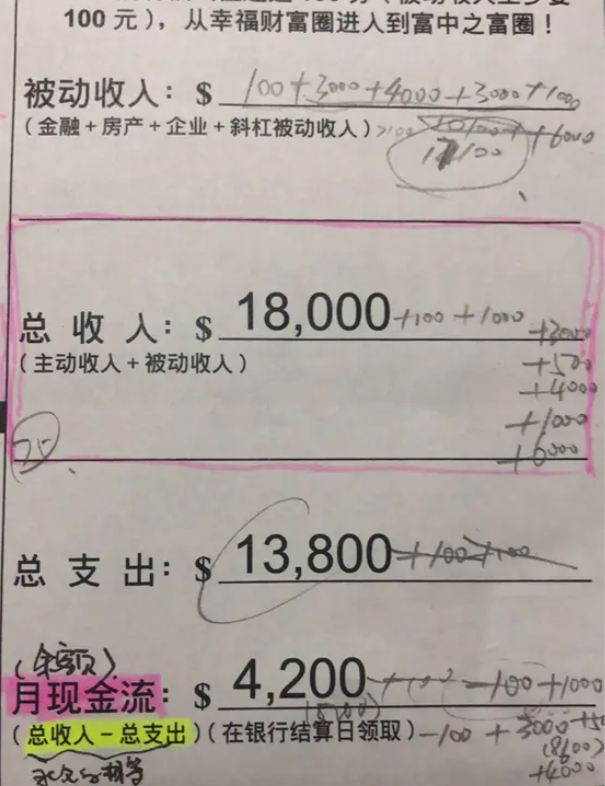 100 元），从幸福财富圈进入到富中之富圈！
被动收入：$ 100+3000+4000+3000+1000
（金融+房产+企业+斜杠被动收入） +6000
17100
总 收 入：$ 18,000+100+1000
+3000
（主动收入+被动收入）
+500
+4000
+1000
+6000
总 支 出：$ 13,800+100+100
（余额）
月现金流：$ 4,200 -100 +1000
（总收入－总支出）（在银行结算日领取）-100 + 3000
(8600)
+4000